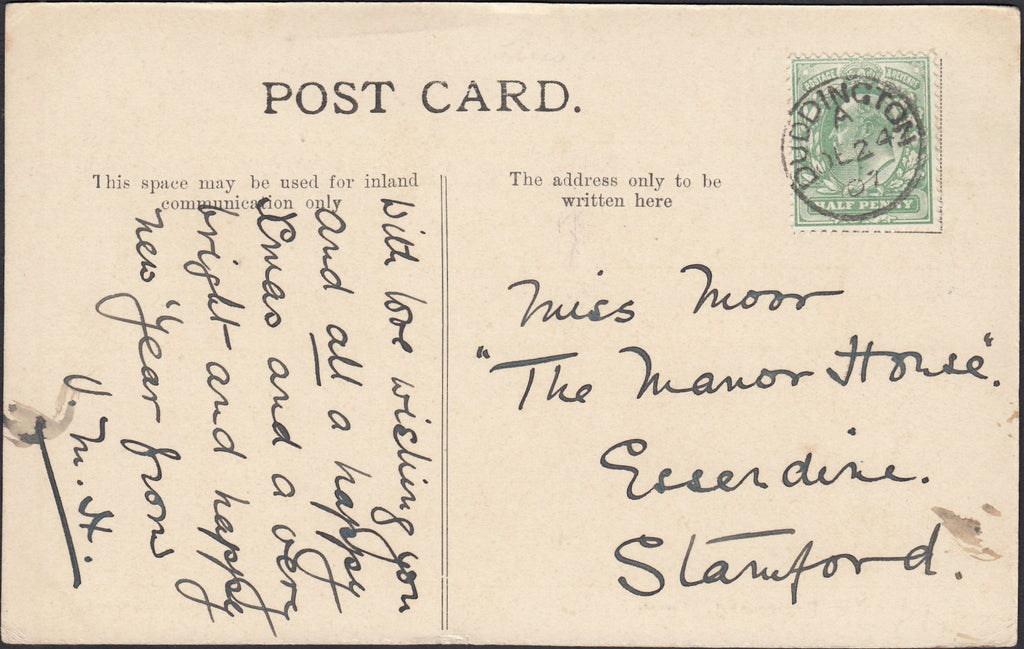 POST CARD.
This space may be used for inland
communication only
The address only to be
written here
POSTAGE & REVENUE
HALF PENNY
DUDDINGTON
A
DE 24
07
With love wishing you
and all a happy
Xmas and a very
bright and happy
New Year from
V. M. H.
Miss Moor
"The Manor House".
Essendine.
Stamford.